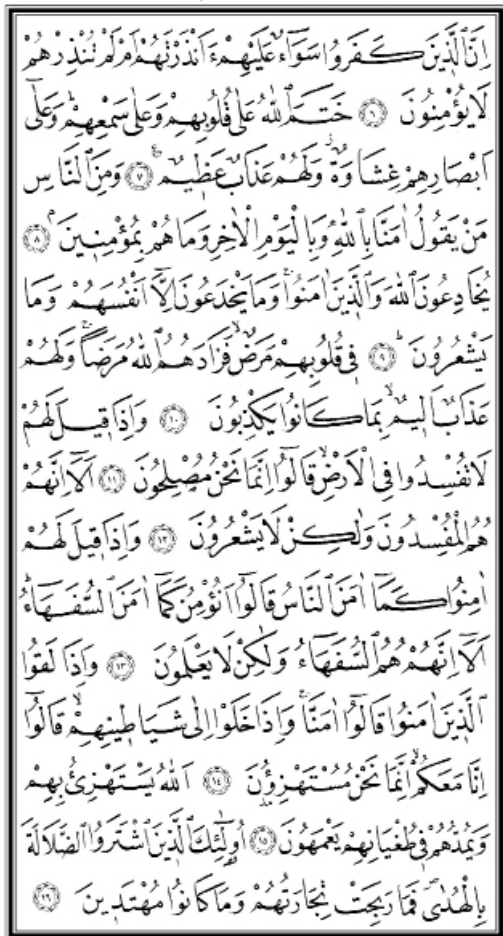 اِنَّ الَّذٖينَ كَفَرُوا سَوَٓاءٌ عَلَيْهِمْ ءَاَنْذَرْتَهُمْ اَمْ لَمْ تُنْذِرْهُمْ
لَا يُؤْمِنُونَ ﴿٦﴾ خَتَمَ اللّٰهُ عَلٰى قُلُوبِهِمْ وَعَلٰى سَمْعِهِمْؕ وَعَلٰٓى
اَبْصَارِهِمْ غِشَاوَةٌؗ وَلَهُمْ عَذَابٌ عَظٖيمٌ ﴿٧﴾ وَمِنَ النَّاسِ
مَنْ يَقُولُ اٰمَنَّا بِاللّٰهِ وَبِالْيَوْمِ الْاٰخِرِ وَمَا هُمْ بِمُؤْمِنٖينَۘ ﴿٨﴾
يُخَادِعُونَ اللّٰهَ وَالَّذٖينَ اٰمَنُواۚ وَمَا يَخْدَعُونَ اِلَّٓا اَنْفُسَهُمْ وَمَا
يَشْعُرُونَؕ ﴿٩﴾ فٖي قُلُوبِهِمْ مَرَضٌۙ فَزَادَهُمُ اللّٰهُ مَرَضًاۚ وَلَهُمْ
عَذَابٌ اَلٖيمٌۙ بِمَا كَانُوا يَكْذِبُونَ ﴿١٠﴾ وَاِذَا قٖيلَ لَهُمْ
لَا تُفْسِدُوا فِي الْاَرْضِۙ قَالُٓوا اِنَّمَا نَحْنُ مُصْلِحُونَ ﴿١١﴾ اَلَٓا اِنَّهُمْ
هُمُ الْمُفْسِدُونَ وَلٰكِنْ لَا يَشْعُرُونَ ﴿١٢﴾ وَاِذَا قٖيلَ لَهُمْ
اٰمِنُوا كَمَٓا اٰمَنَ النَّاسُ قَالُٓوا اَنُؤْمِنُ كَمَٓا اٰمَنَ السُّفَهَٓاءُؕ
اَلَٓا اِنَّهُمْ هُمُ السُّفَهَٓاءُ وَلٰكِنْ لَا يَعْلَمُونَ ﴿١٣﴾ وَاِذَا لَقُوا
الَّذٖينَ اٰمَنُوا قَالُٓوا اٰمَنَّاۚ وَاِذَا خَلَوْا اِلٰى شَيَاطٖينِهِمْۙ قَالُٓوا
اِنَّا مَعَكُمْۙ اِنَّمَا نَحْنُ مُسْتَهْزِؤُ۫نَ ﴿١٤﴾ اَللّٰهُ يَسْتَهْزِئُ بِهِمْ
وَيَمُدُّهُمْ فٖي طُغْيَانِهِمْ يَعْمَهُونَ ﴿١٥﴾ اُو۬لٰٓئِكَ الَّذٖينَ اشْتَرَوُا الضَّلَالَةَ
بِالْهُدٰىࣕ فَمَا رَبِحَتْ تِجَارَتُهُمْ وَمَا كَانُوا مُهْتَدٖينَ ﴿١٦﴾